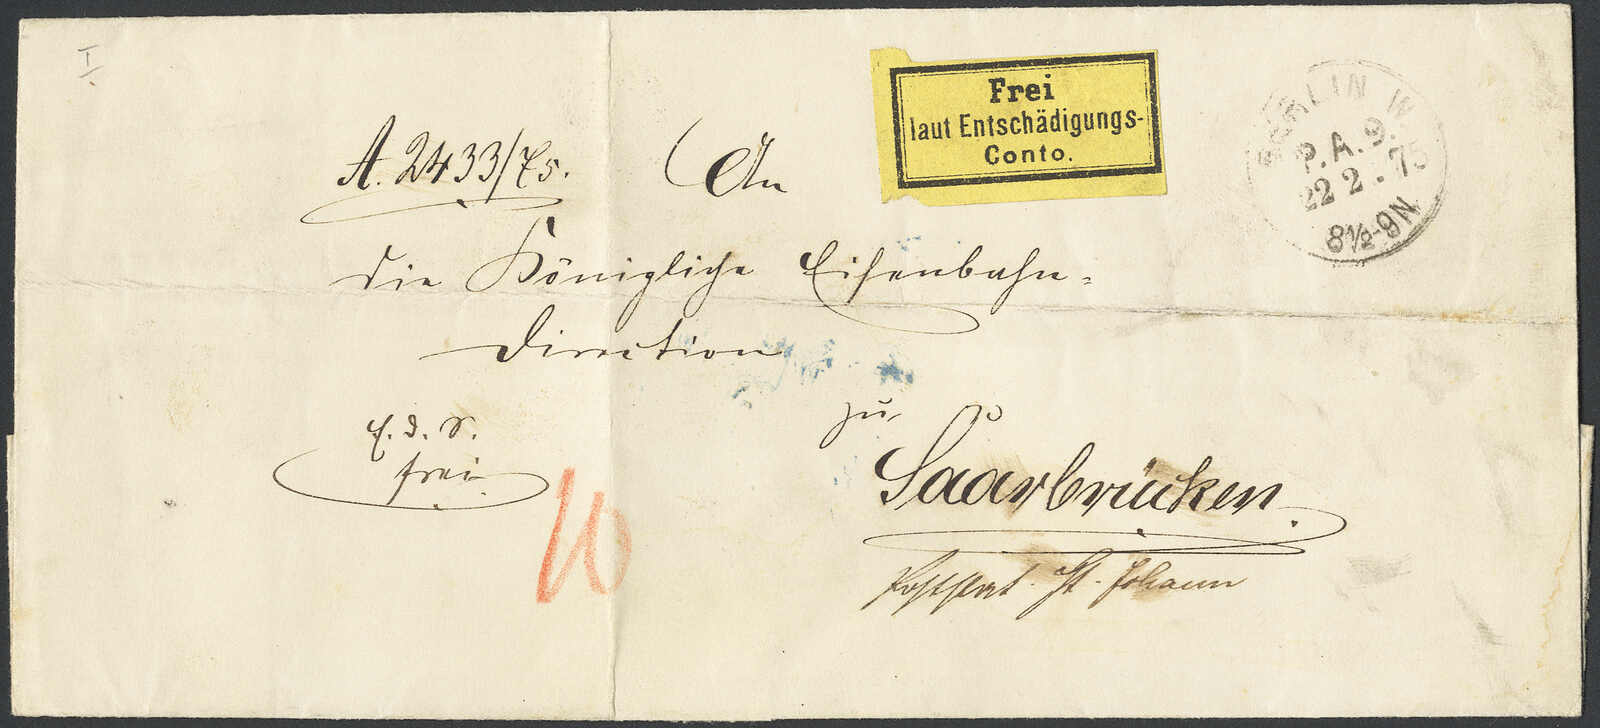 I
A. 2433/75.
An
Frei
laut Entschädigungs-
Conto.
BERLIN W.
P.A.9.
22 2.75
8½-9N
die Königliche Eisenbahn-
Direction
zu
Saarbrücken.
E. d. S.
frei
10
St. Johann